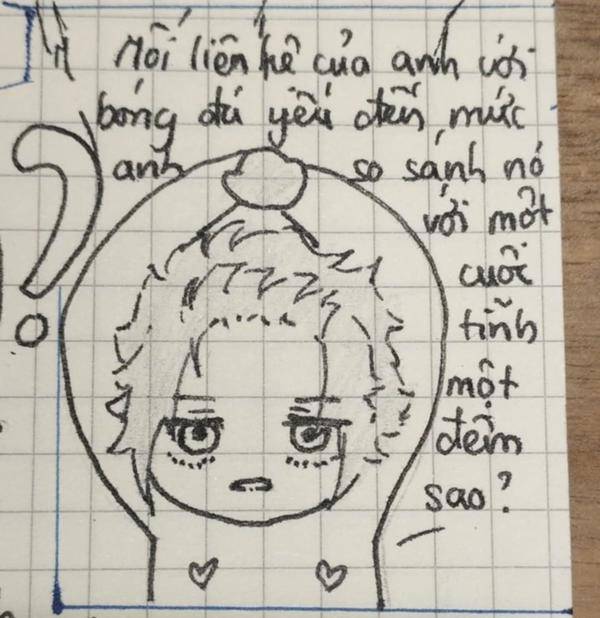 Mối liên hệ của anh với
bóng đá yếu đến mức
anh so sánh nó
với một
cuộc
tình
một
đêm
sao?
?